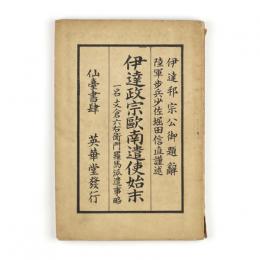 伊達邦宗公御題辭
陸軍歩兵少佐堀田信直謹述
伊達政宗歐南遣使始末
一名支倉六右衛門羅馬派遣事略
仙臺書肆 英華堂發行